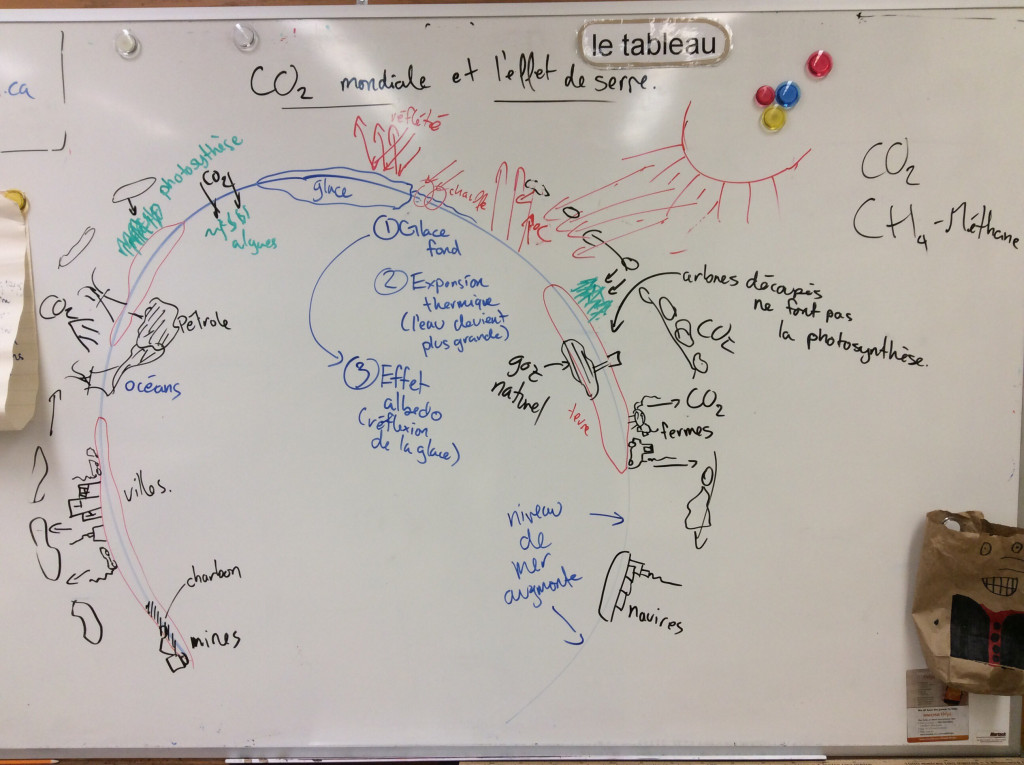 le tableau
.ca
CO2 mondiale et l'effet de serre.
réflété
photosynthèse
CO2
algues
glace
chauffe
CO2
CH4 - Méthane
① Glace
fond
② Expansion
thermique
(l'eau devient
plus grande)
③ Effet
albedo
(réflexion
de la glace)
arbres découpés
ne font pas
la photosynthèse.
CO2
CO2
Pétrole
océans
naturel
terre
CO2
fermes
villes.
charbon
mines
niveau
de
mer
augmente
navires